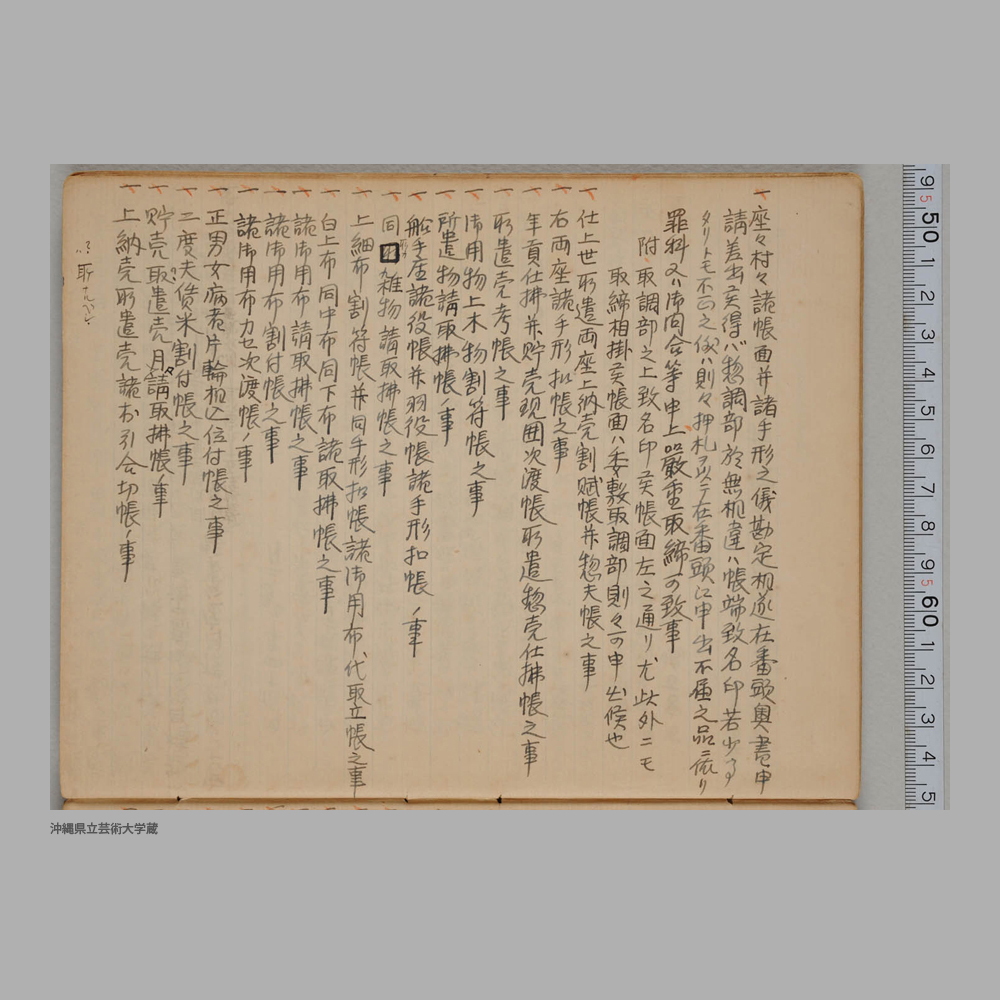 一座々村々諸帳面并諸手形之儀勘定相遂在番頭奥書申
請差出候得ハ惣調部於無相違ハ帳端致名印若少々
タリトモ不正之儀ハ則々押札ヲ以テ在番頭江申出不届之品ニ依リ
罪科又ハ御問合等申上品厳重取締可致事
附取調部之上致名印候帳面左之通リ尤此外ニモ
取締相掛候帳面ハ委敷取調部則々可申出候也
一仕上世所遣両座上納完割賦帳并惣夫帳之事
一右両座諸手形扣帳之事
一年貢仕拂并貯売現囲次渡帳所遣惣売仕拂帳之事
一所遣売考帳之事
一御用物上木物割符帳之事
一所遣物請取拂帳ノ事
一船手座諸役帳并羽役帳諸手形扣帳ノ事
一同雑物請取拂帳之事
一上細布割符帳并同手形扣帳諸御用布代取立帳之事
一白上布同中布同下布諸取拂帳之事
一諸御用布請取拂帳之事
一諸御用布割付帳之事
一諸御用布カセ次渡帳ノ事
一正男女病者片輪相込位付帳之事
一二度夫賃米割付帳之事
一貯売取遣売月々請取拂帳ノ事
一上納売所遣売諸書引合切帳ノ事
9
50
1
2
3
4
5
6
7
8
9
60
1
2
3
4
5
沖縄県立芸術大学蔵